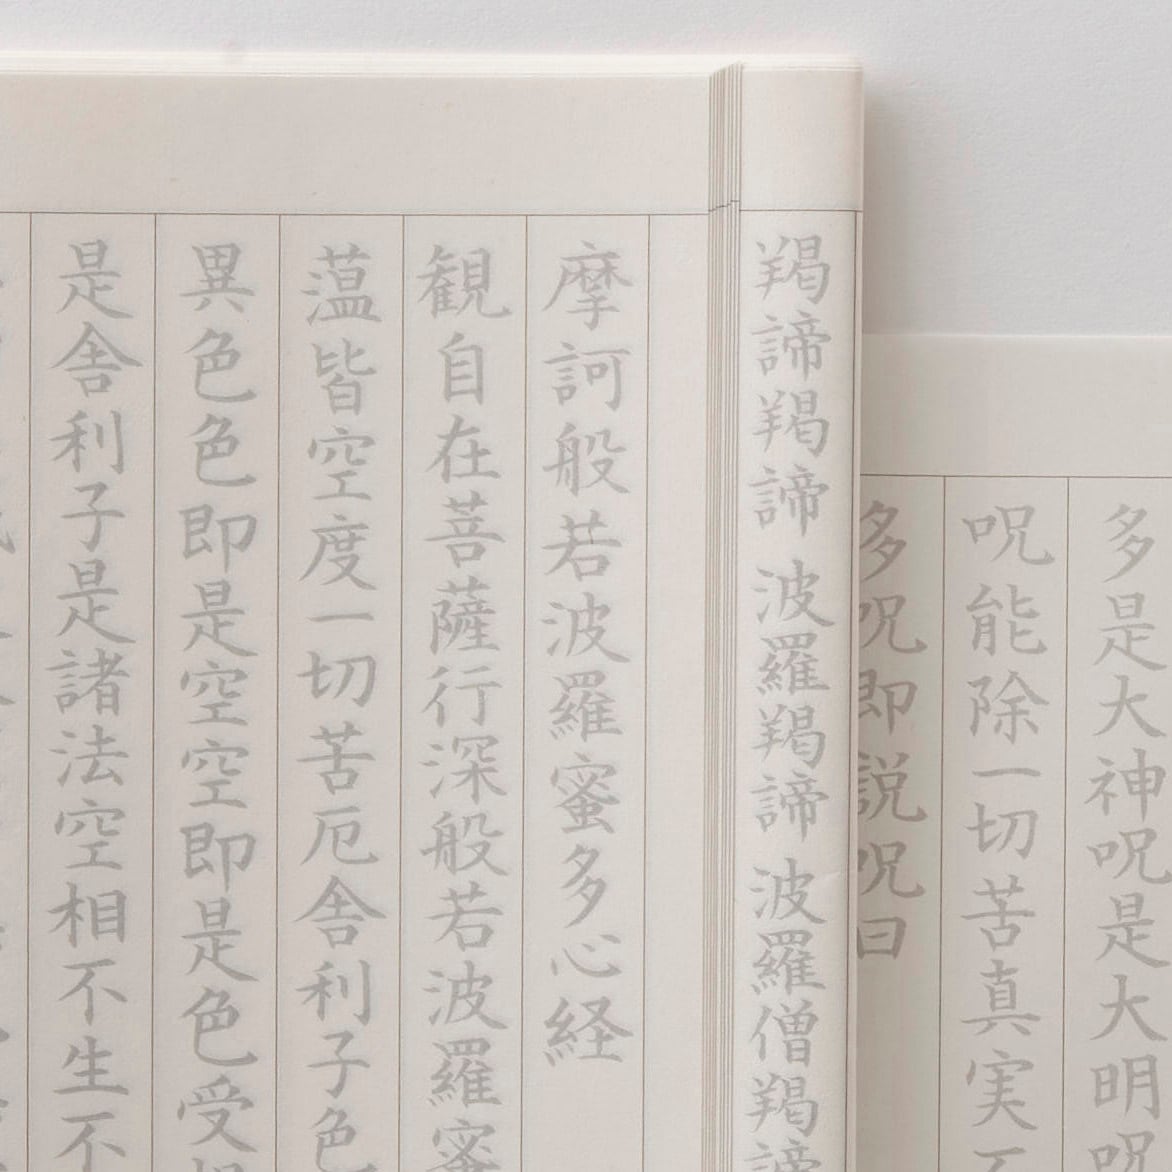 多是大神呪是大明呪
呪能除一切苦真実不
多呪即説呪曰
羯諦羯諦 波羅羯諦 波羅僧羯諦
摩訶般若波羅蜜多心経
観自在菩薩行深般若波羅蜜
薀皆空度一切苦厄舎利子色
異色色即是空空即是色受
是舎利子是諸法空相不生不